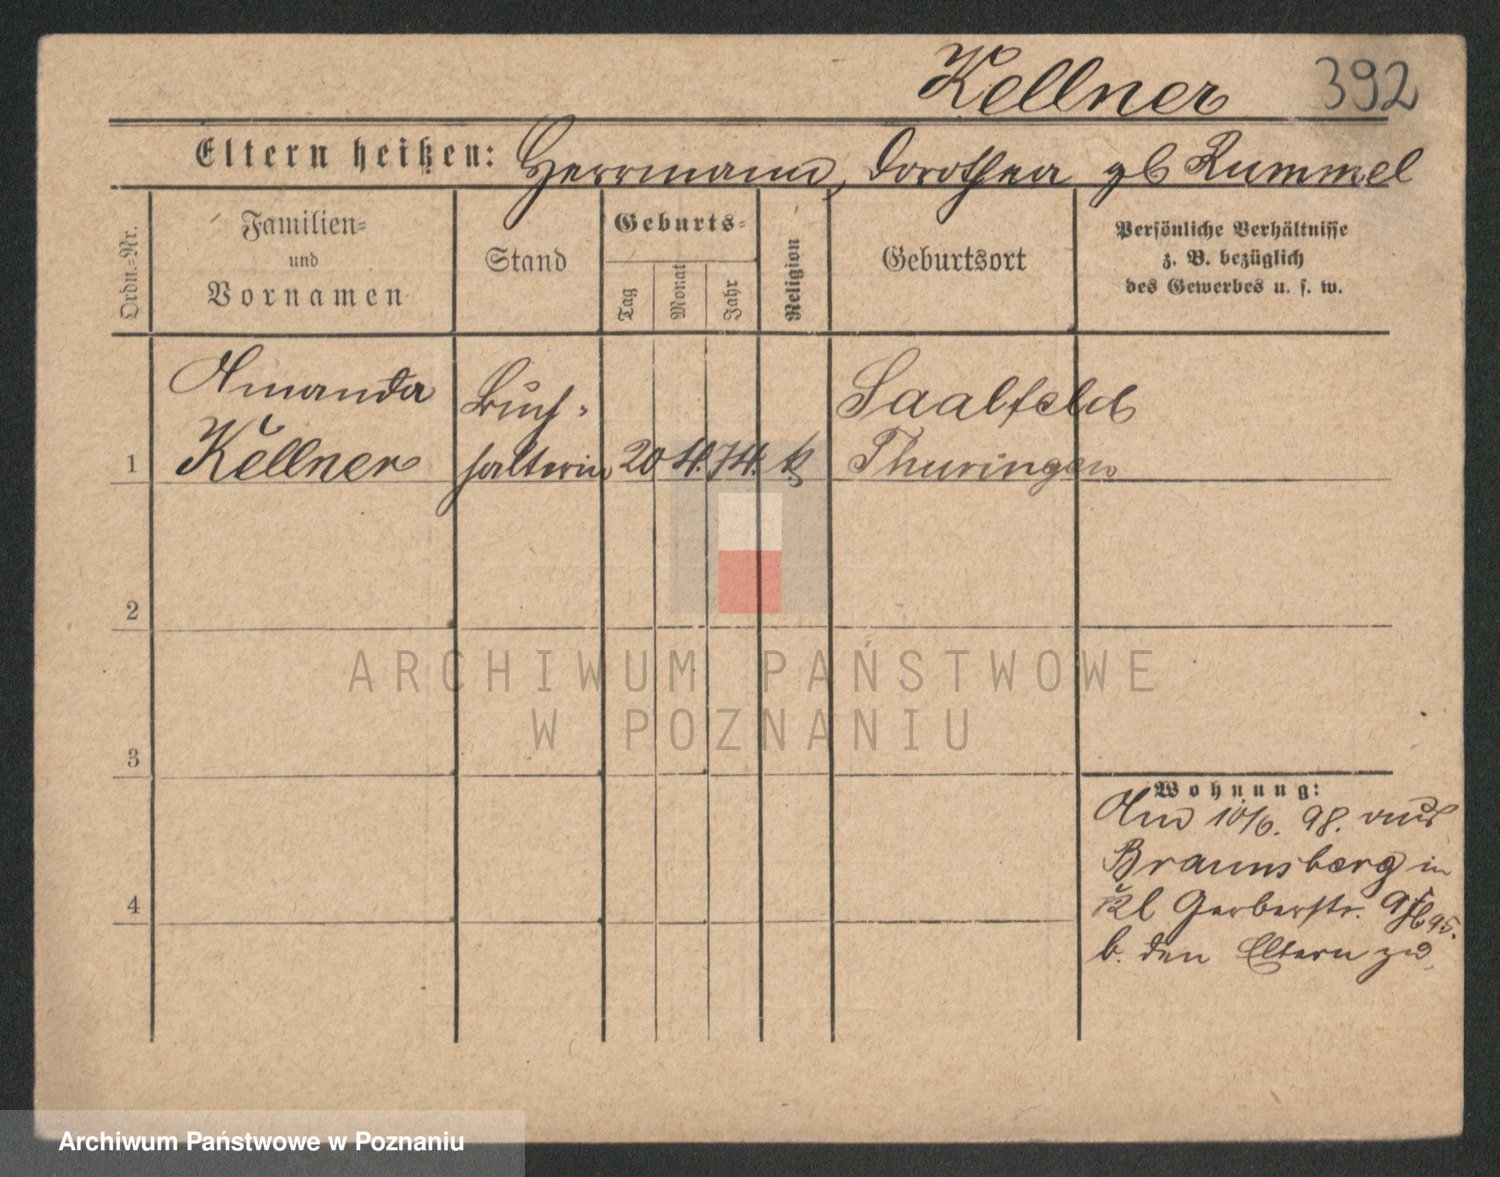 Kellner 392
Eltern heißen: Herrmann, Dorothea gb Rummel
Ordn.=Nr.
Familien=
und
Vornamen
Stand
Geburts=
Tag
Monat
Jahr
Religion
Geburtsort
Persönliche Verhältnisse
z. B. bezüglich
des Gewerbes u. s. w.
Amanda
Kellner
Buch-
halterin
1
20 4. 74. k
Saalfeld
Thuringen
2
3
4
ARCHIWUM PAŃSTWOWE
W POZNANIU
Wohnung:
10/6. 98. aus
Braunsberg in
Kl Gerberstr. 9
b. den Eltern
Archiwum Państwowe w Poznaniu